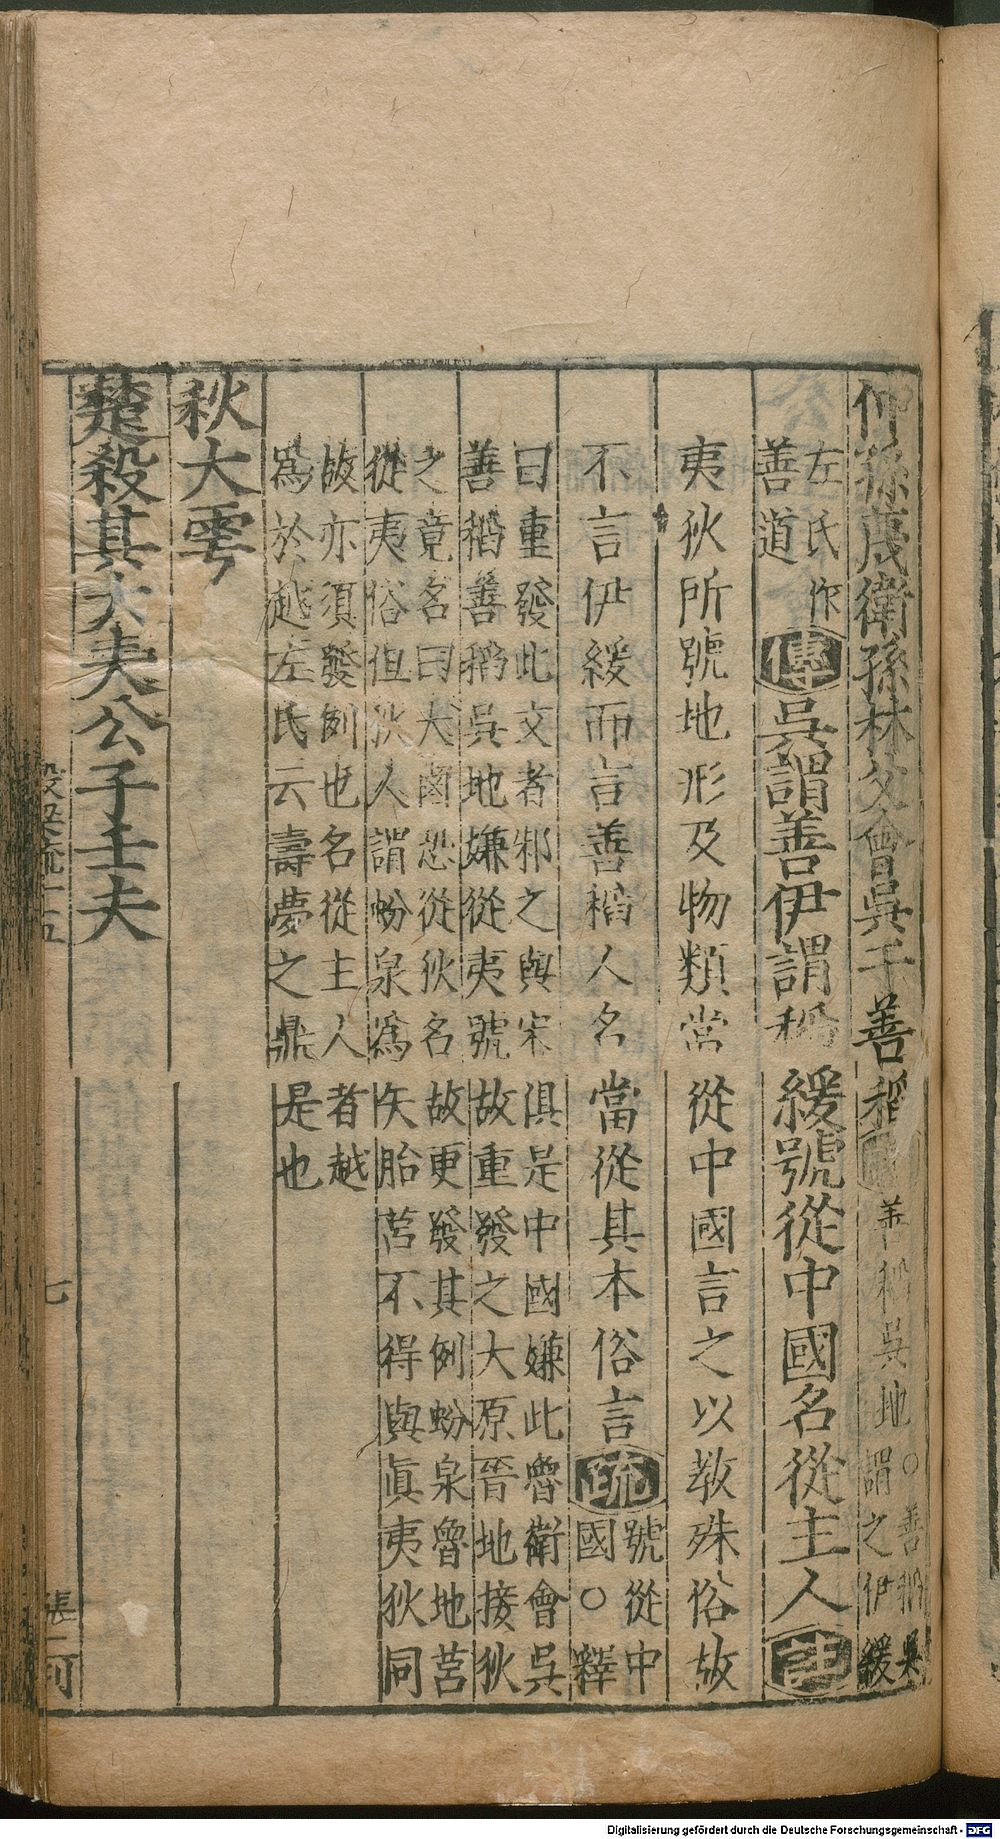 仲孫蔑衛孫林父會吳于善稻 善稻吳地○善稻吳謂之伊緩
左氏作善道傳吳謂善伊謂稻緩號從中國名從主人註
夷狄所號地形及物類當從中國言之以教殊俗故
不言伊緩而言善稻人名當從其本俗言疏號從中國○釋
曰重發此文者邾之與宋俱是中國嫌此魯衛會吳
善稻善稻吳地嫌從夷號故重發之大原晉地接狄
之竟名曰大鹵恐從狄名故更發其例蚡泉魯地莒
從夷俗但狄人謂蚡泉爲矢胎莒不得與眞夷狄同
故亦須發例也名從主人者越
爲於越左氏云壽夢之鼎是也
秋大雩
楚殺其大夫公子壬夫
榖梁疏十五
七
張一可
Digitalisierung gefördert durch die Deutsche Forschungsgemeinschaft - DFG